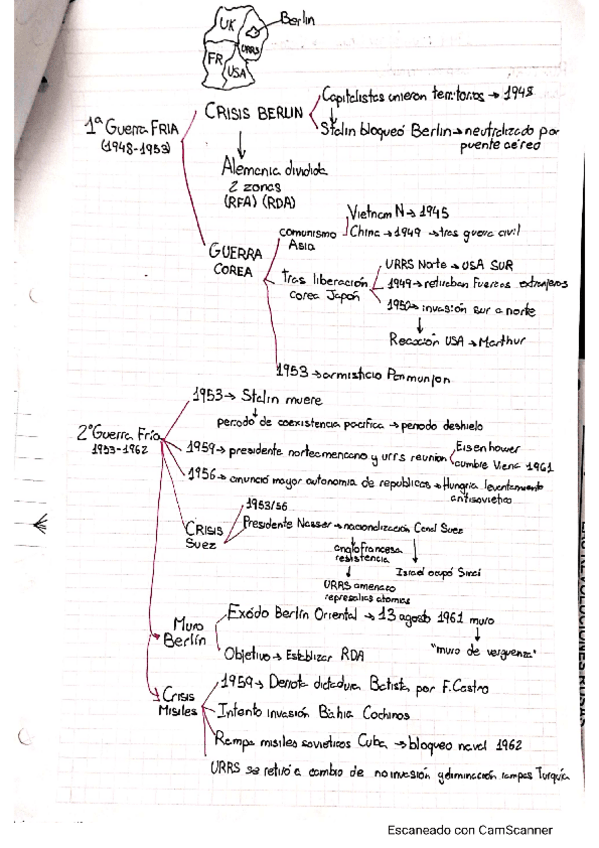 UK
Berlin
URRS
FR
USA
1ª Guerra FRIA
(1948-1953)
CRISIS BERLIN
Capitalistas unieron territorios → 1948
Stalin bloqueó Berlin → neutralizado por
puente aéreo
Alemania dividida
2 zonas
(RFA) (RDA)
GUERRA
COREA
comunismo
Asia
Vietnam N → 1945
China → 1949 → tras guerra civil
tras liberación
corea Japón
URRS Norte → USA SUR
1949 → retiraban Fuerzas extranjeras
1950 → invasión sur a norte
Reacción USA → Marthur
1953 → armisticio Panmunjon
2ª Guerra Fría
1953-1962
1953 → Stalin muere
periodo de coexistencia pacifica → periodo deshielo
1959 → presidente norteamericano y urrs reunion
Eisenhower
cumbre Viena 1961
1956 → anunció mayor autonomia de republicas → Hungria levantamiento
antisovietico
CRISIS
Suez
1953/56
Presidente Nasser → nacionalización Canal Suez
anglofrancesa
resistencia
Israel ocupó Sinai
URRS amenazo
represalias atomicas
Muro
Berlín
Exódo Berlín Oriental → 13 agosto 1961 muro
"muro de verguenza"
Objetivo → Estabilizar RDA
Crisis
Misiles
1959 → Derrota dictadura Batista por F.Castro
Intento invasión Bahia Cochinos
Rampa misiles sovieticos Cuba → bloqueo naval 1962
URRS se retiró a cambio de no invasión y eliminación rampas Turquía
Escaneado con CamScanner